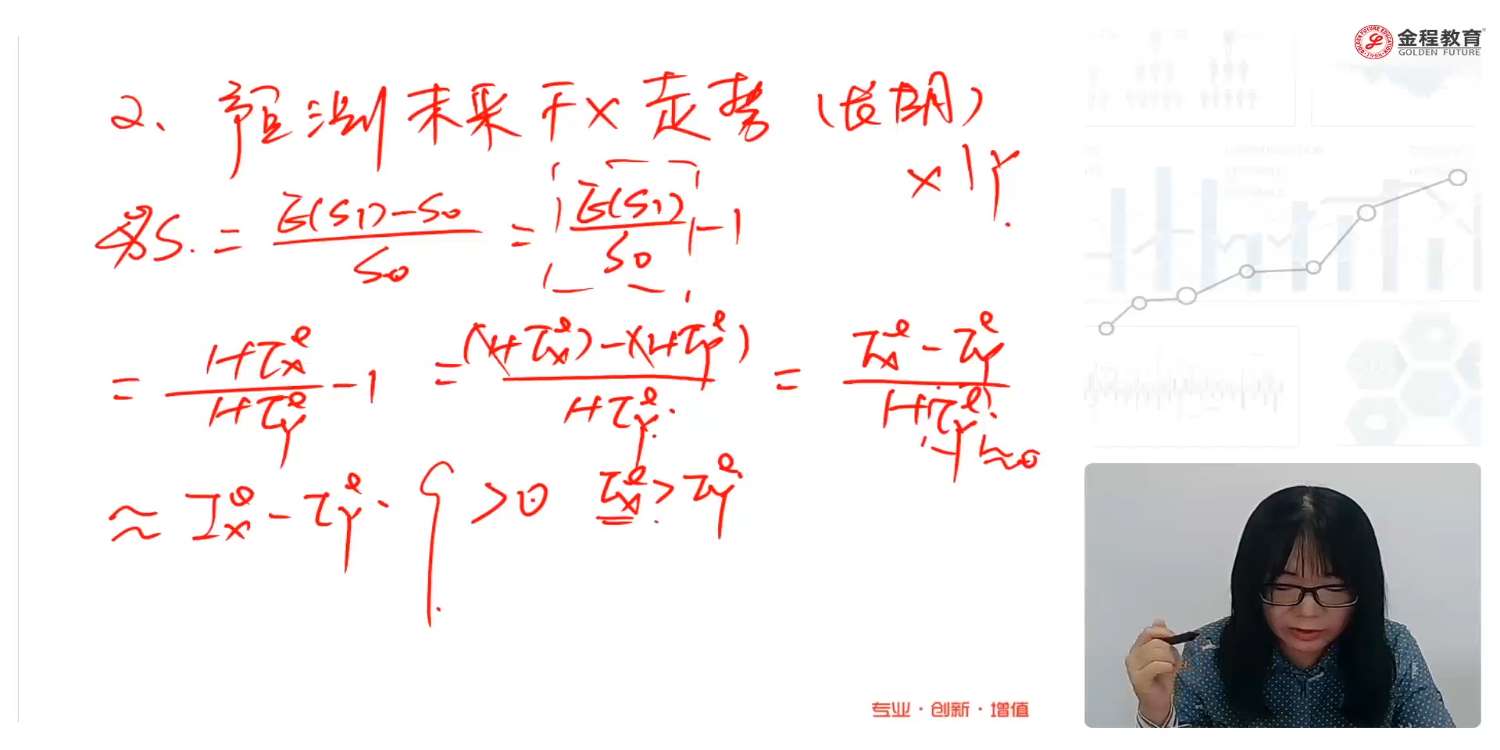 金程教育
GOLDEN FUTURE
2、预测未来FX走势(长期)
X/Y
%S = (E(S1)-S0)/S0 = E(S1)/S0 - 1
= (1+πx^e)/(1+πy^e) - 1 = ((1+πx^e)-(1+πy^e))/(1+πy^e) = (πx^e - πy^e)/(1+πy^e)
→≈0
≈ πx^e - πy^e { >0 πx^e > πy^e
专业·创新·增值